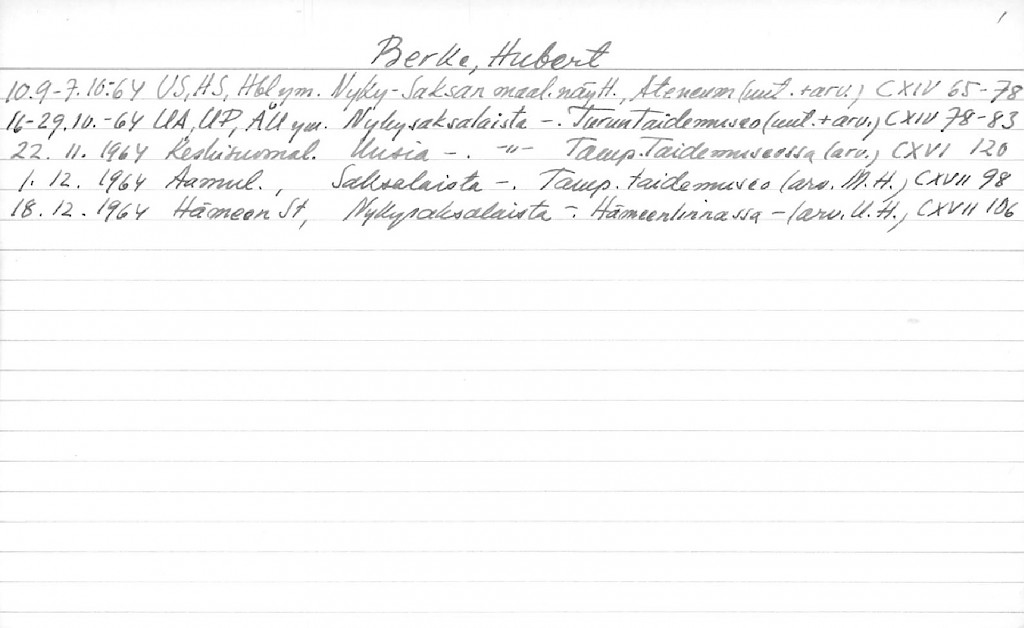 1
Berke, Hubert
10.9-7.10-64 US, HS, Hbl ym. Nyky-Saksan maal.näytt., Ateneum (uut.+arv.) CXIV 65-78
16-29.10.-64 UA, UP, ÅU ym. Nykysaksalaista -. Turun Taidemuseo (uut.+arv.) CXIV 78-83
22. 11. 1964 Keskisuomal. Uusia -. -"- Tamp. Taidemuseossa (arv.) CXVI 120
1. 12. 1964 Aamul., Saksalaista -. Tamp. taidemuseo (arv. M.H.) CXVII 98
18. 12. 1964 Hämeen St, Nykysaksalaista - Hämeenlinnassa - (arv. U.H.) CXVII 106